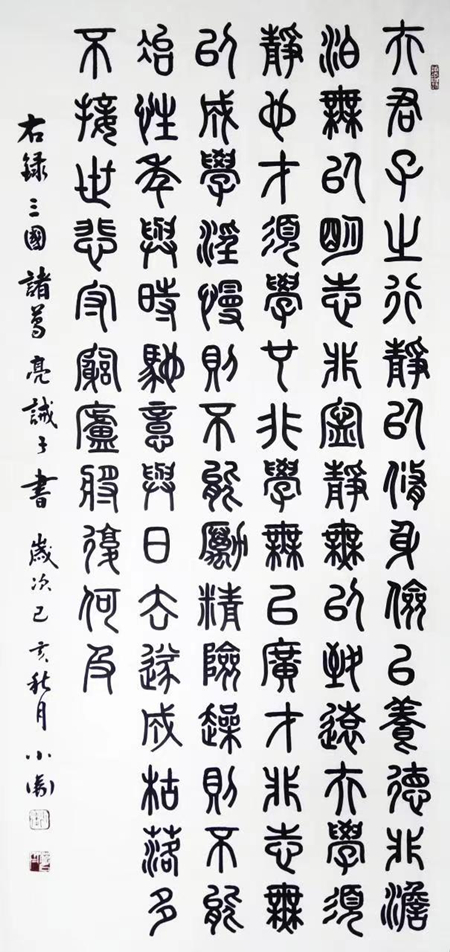 夫君子之行靜以脩身儉以養德非澹
泊無以明志非寧靜無以致遠夫學須
靜也才須學也非學無以廣才非志無
以成學淫慢則不能勵精險趮則不能
冶性年與時馳意與日去遂成枯落多
不接世悲守窮廬將復何及
右錄三國諸葛亮誡子書 歲次己亥秋月小衛